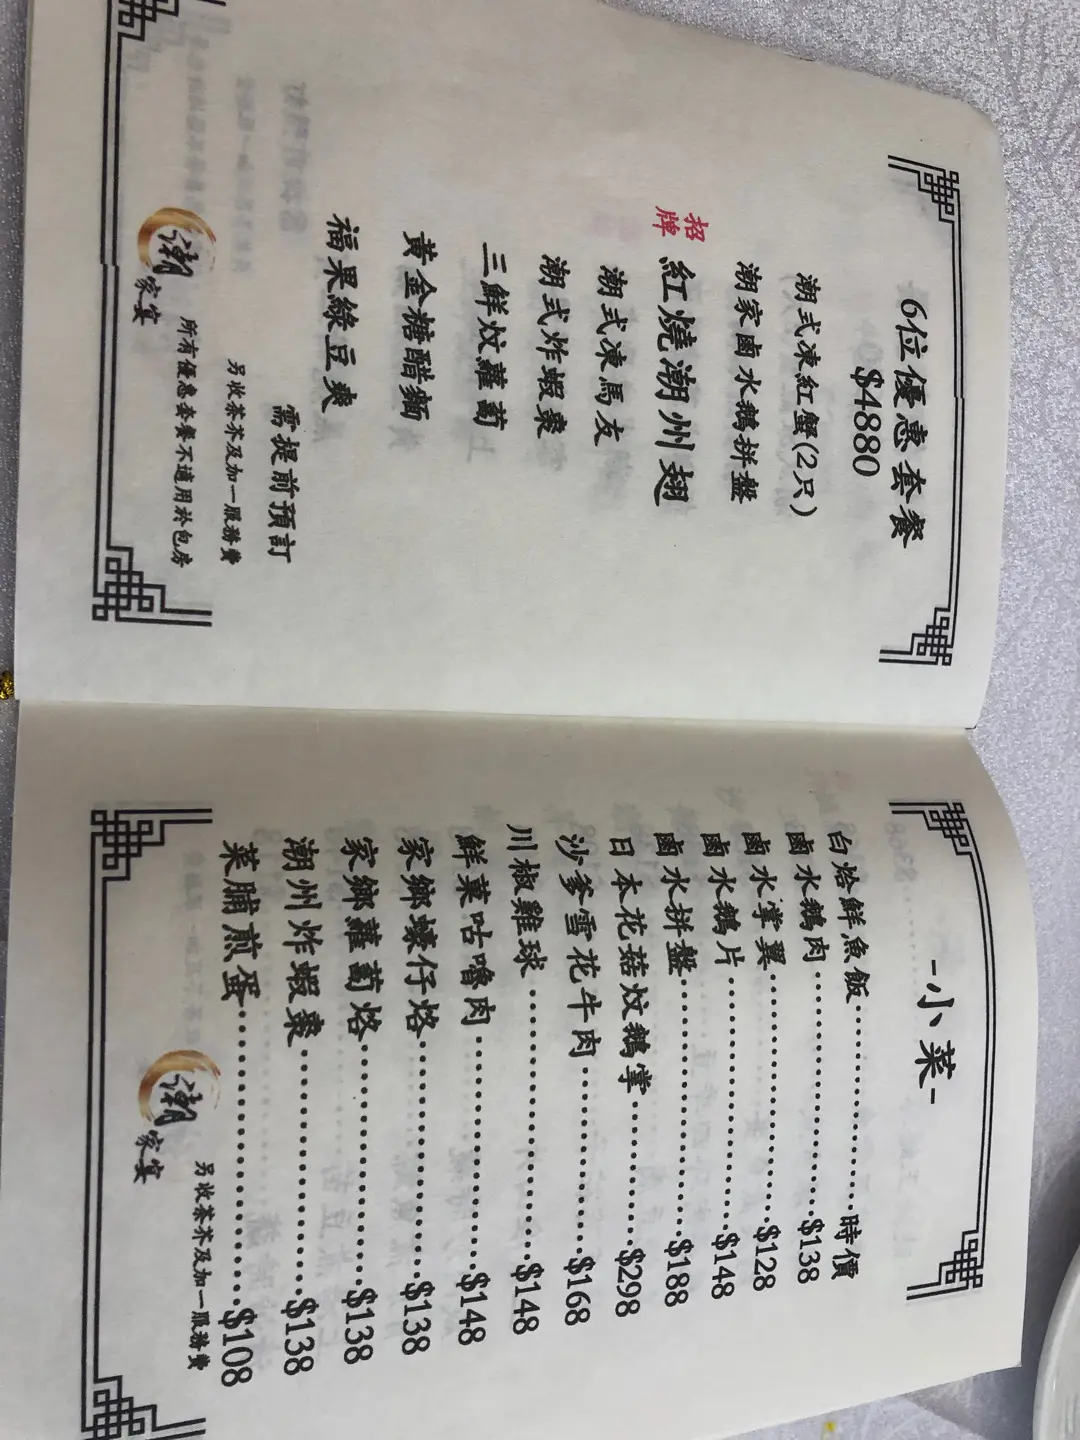 6位優惠套餐
$4880
潮式凍紅蟹(2只)
潮家鹵水鵝拼盤
招牌
紅燒潮州翅
潮式凍馬友
潮式炸蝦棗
三鮮炆蘿蔔
黃金糖醋麵
福果綠豆爽
需提前預訂
另收茶芥及加一服務費
所有優惠套餐不適用於包房
潮
家宴
-小菜-
白烚鮮魚飯··········時價
鹵水鵝肉··········$138
鹵水掌翼··········$128
鹵水鵝片··········$148
鹵水拼盤··········$188
日本花菇炆鵝掌··········$298
沙爹雪花牛肉··········$168
川椒雞球··········$148
鮮菓咕嚕肉··········$148
家鄉蠔仔烙··········$138
家鄉蘿蔔烙··········$138
潮州炸蝦棗··········$138
菜脯煎蛋··········$108
另收茶芥及加一服務費
潮
家宴